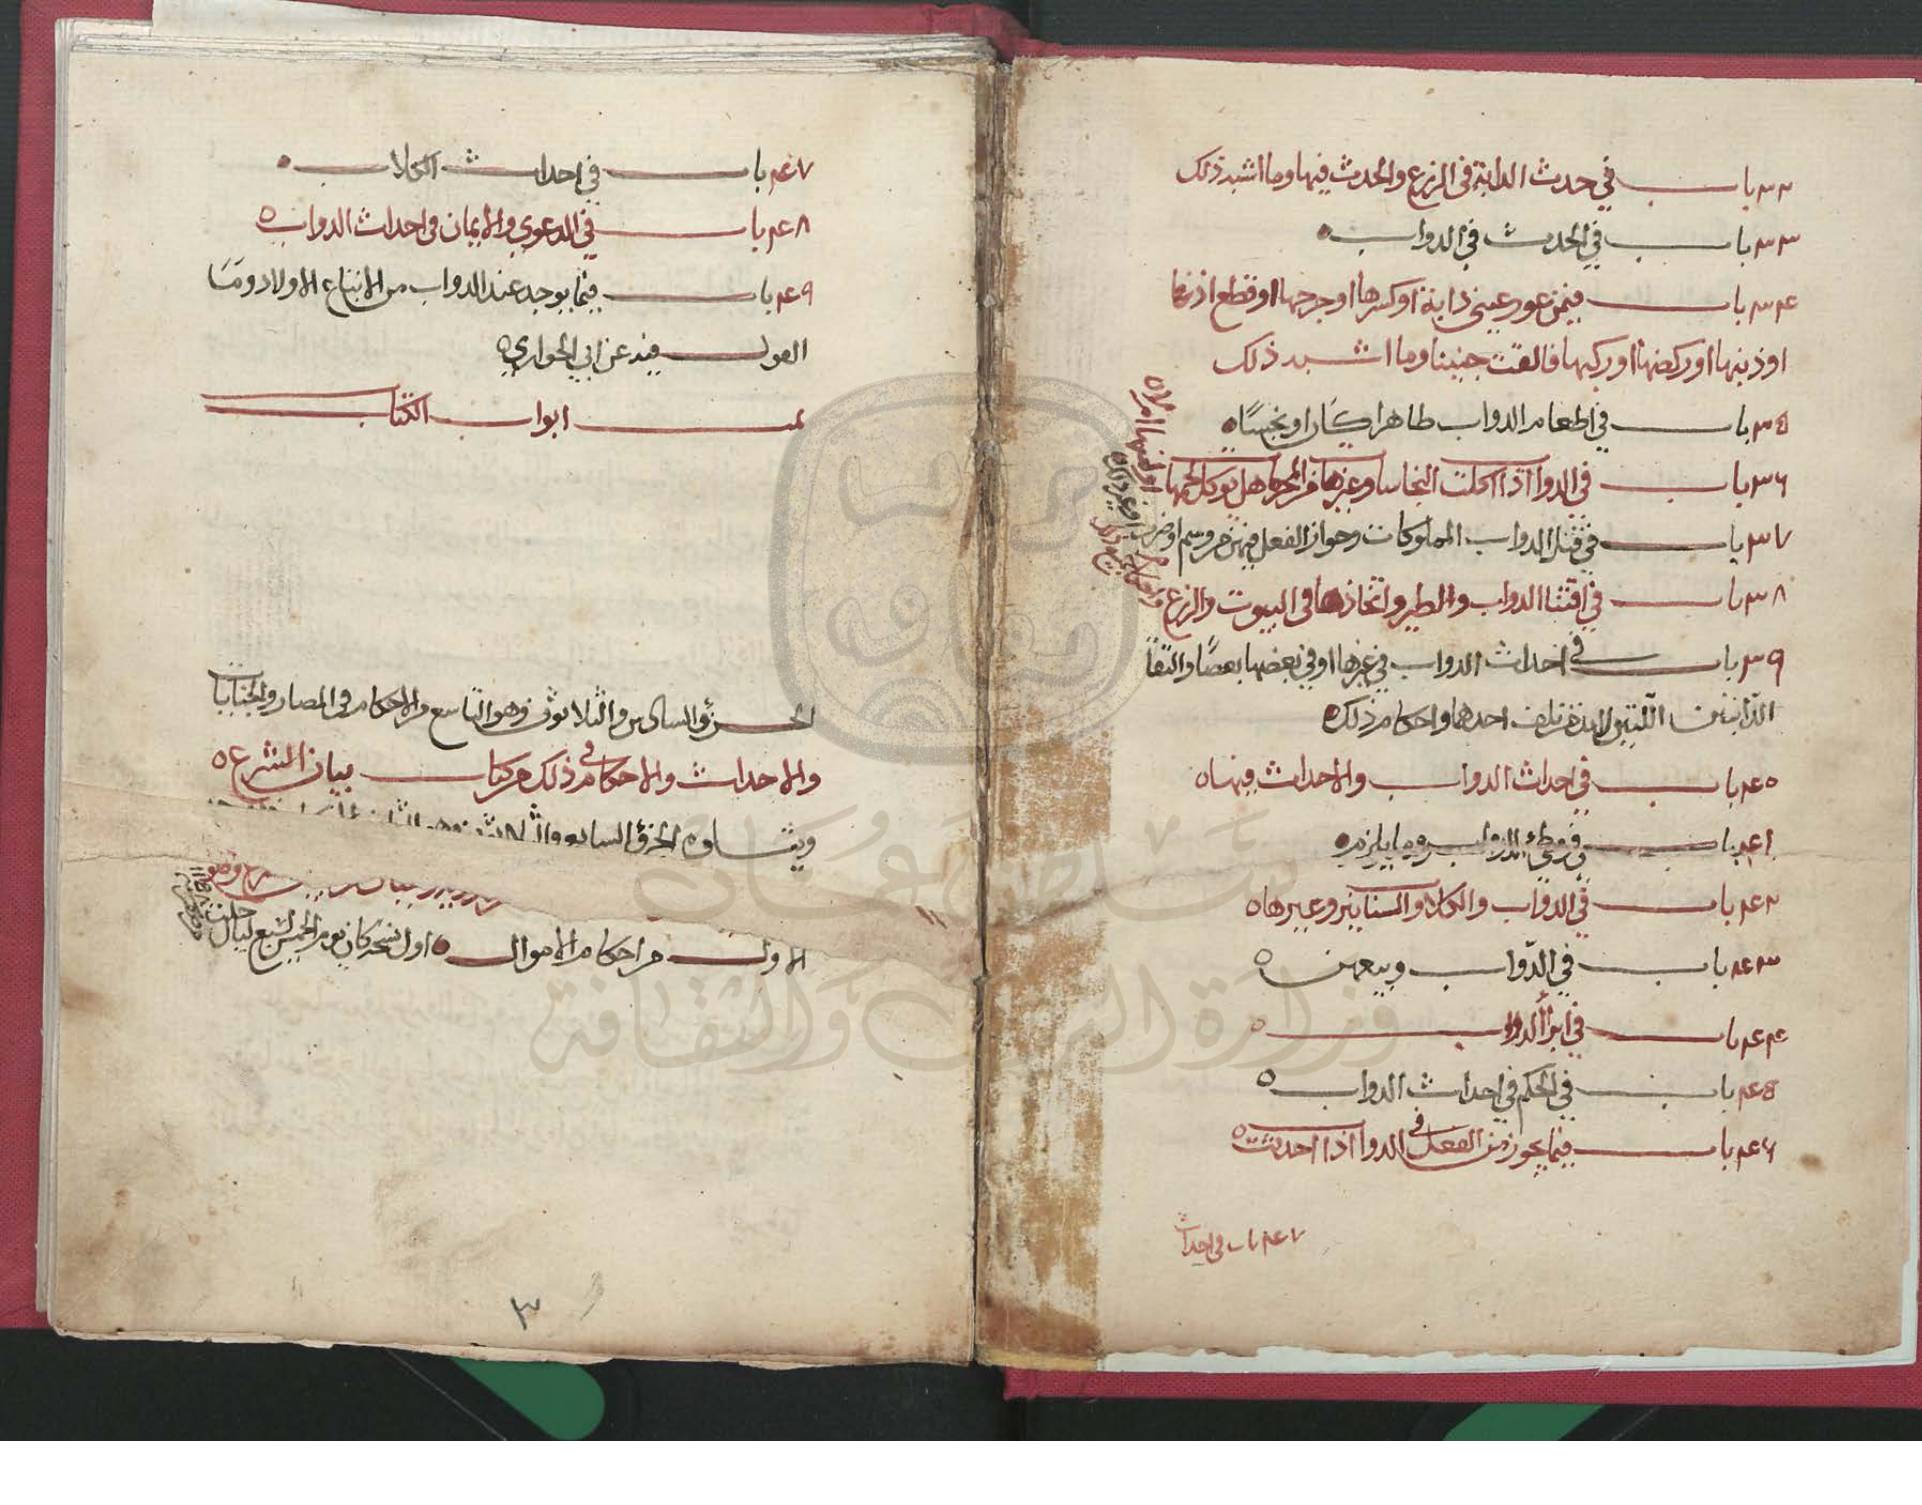 ٣٢ باب في حدث الدابة في الزرع والحدث فيها وما اشبه ذلك
٣٣ باب في الحدث في الدواب
٣٤ باب فيمن عور عيني دابة او كسرها او جرحها او قطع اذنها
او ذنبها او ركضها او ركبها فالقت جنينا وما اشبه ذلك
٣٥ باب في اطعام الدواب طاهرا كان او نجسا
٣٦ باب في الدواب اذا اكلت النجاسا وغيرها من المحرم هل يوكل لحمها
٣٧ باب في قتل الدواب المملوكات وجواز الفعل فيهن من وسم او ضرب او غير ذلك
٣٨ باب في اقتنا الدواب والطير واتخاذها في البيوت والزرع
٣٩ باب في احداث الدواب في غيرها او في بعضها بعضا والتقا
الدابتين اللتين تلف احدهما واحكام ذلك
٤٠ باب في احداث الدواب والاحداث فيها
٤١ باب في وطئ الدواب وما يلزم
٤٢ باب في الدواب والكلاب والسنانير وغيرها
٤٣ باب في الدواب وبيعهن
٤٤ باب في ابرأ الدواب
٤٥ باب في الحكم في احداث الدواب
٤٦ باب فيما يجوز من الفعل في الدواب اذا احدثت
٤٧ باب في احداث
٤٧ باب في احداث الكلاب
٤٨ باب في الدعوى والايمان في احداث الدواب
٤٩ باب فيما يوجد عند الدواب من الانتاع الاولاد وما
القول فيه عن ابي الحواري
تمت ابواب الكتاب
الجزؤ السادس والثلاثون وهو التاسع من الاحكام في المضار والجنايات
والاحداث والاحكام في ذلك من كتاب بيان الشرع
ويتلوه الجزؤ السابع والثلاثون وهو
الاول من احكام الاموال اول نسخه كان يوم الخميس لسبع ليال خلت
٣
سلطنة عُمان
وزارة التراث والثقافة